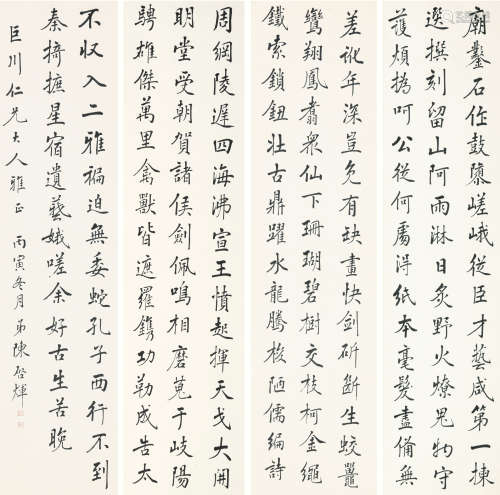 廟鑿石作鼓隳嵯峨從臣才藝咸第一揀
選撰刻留山阿雨淋日炙野火燎鬼物守
護煩撝呵公從何處得紙本毫髮盡備無
差訛年深豈免有缺畫快劍斫斷生蛟鼉
鸞翔鳳翥衆仙下珊瑚碧樹交枝柯金繩
鐵索鎖鈕壯古鼎躍水龍騰梭陋儒編詩
周綱陵遲四海沸宣王憤起揮天戈大開
明堂受朝賀諸侯劍佩鳴相磨蒐于岐陽
騁雄傑萬里禽獸皆遮羅鐫功勒成告太
不收入二雅褊迫無委蛇孔子西行不到
秦掎摭星宿遺羲娥嗟余好古生苦晚
巨川仁兄大人雅正 丙寅冬月 弟陳啓輝